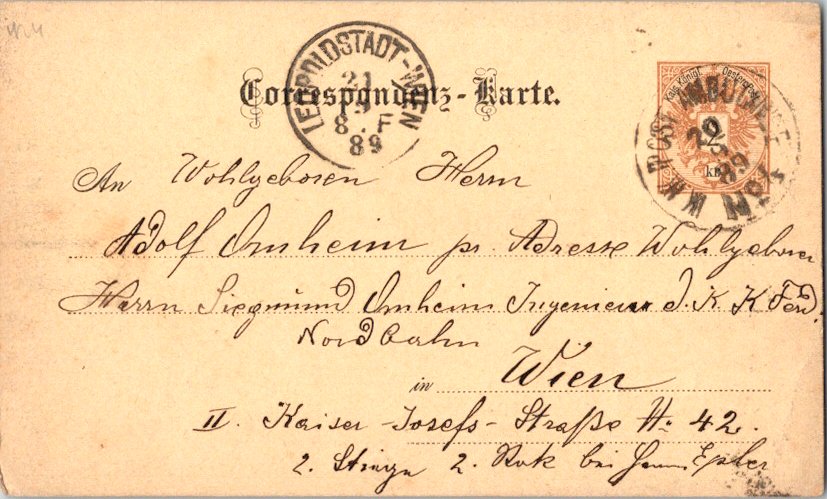 Correspondenz-Karte.
LEOPOLDSTADT-WIEN
21
9
8.F
89
Kais. Königl. Oesterr. Post
K.K. POSTAMBULANCE
20
9
89
2 kr.
An Wohlgeboren Herrn
Adolf Ornheim pr. Adresse Wohlgeboren
Herrn Siegmund Ornheim Ingenieur d. K K Ferd.
Nordbahn
in Wien
II. Kaiser-Josefs-Straße No 42.
2. Stiege 2. Stok bei Epler